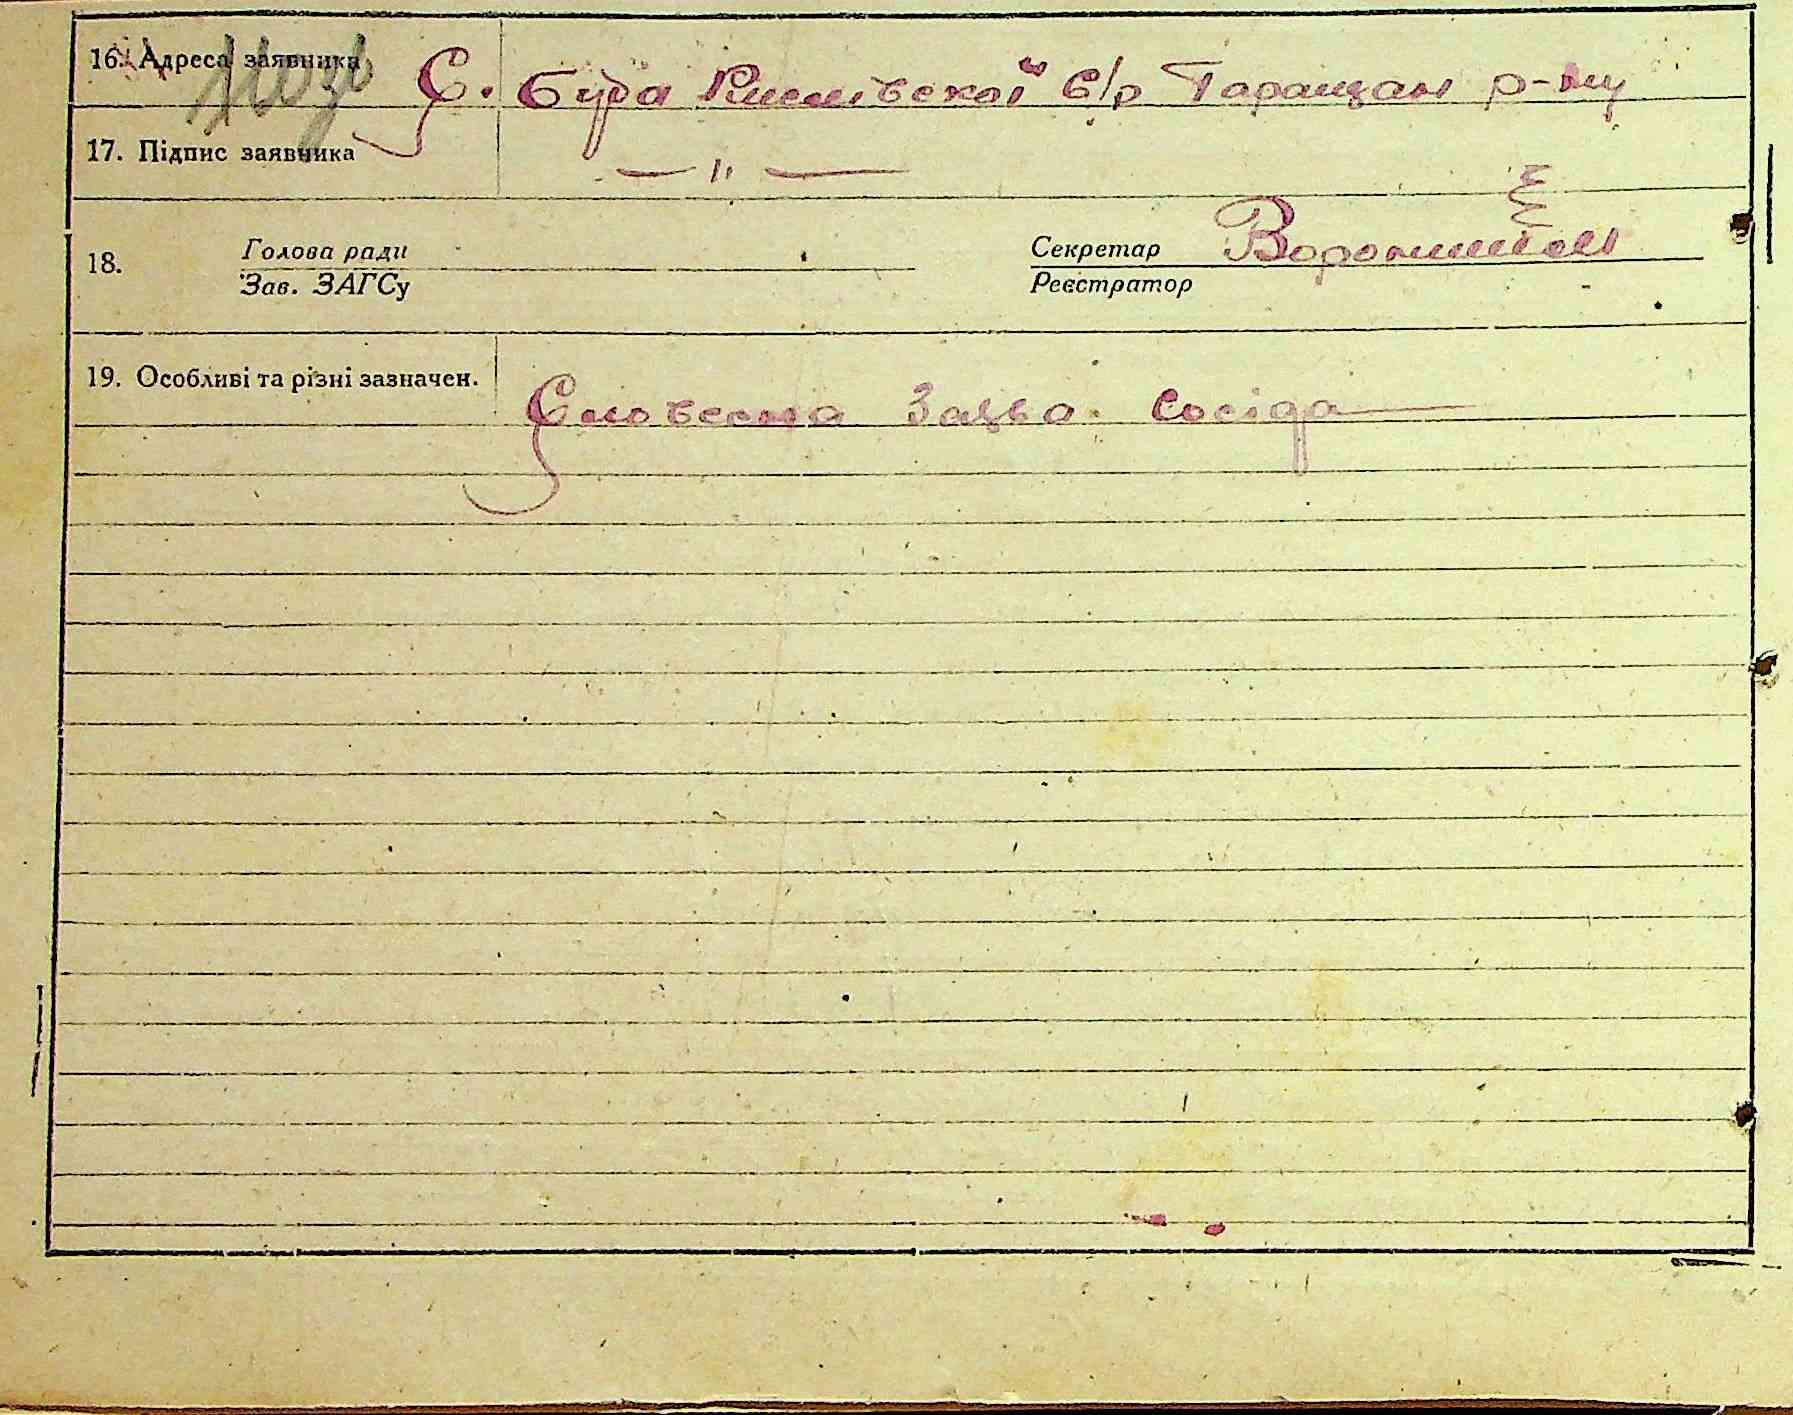 16. Адреса заявника С. Буда с/р Таращан р-ну
17. Підпис заявника — " —
18. Голова ради Секретар
Зав. ЗАГСу Реєстратор
19. Особливі та різні зазначен. Словесна Заява сосіда